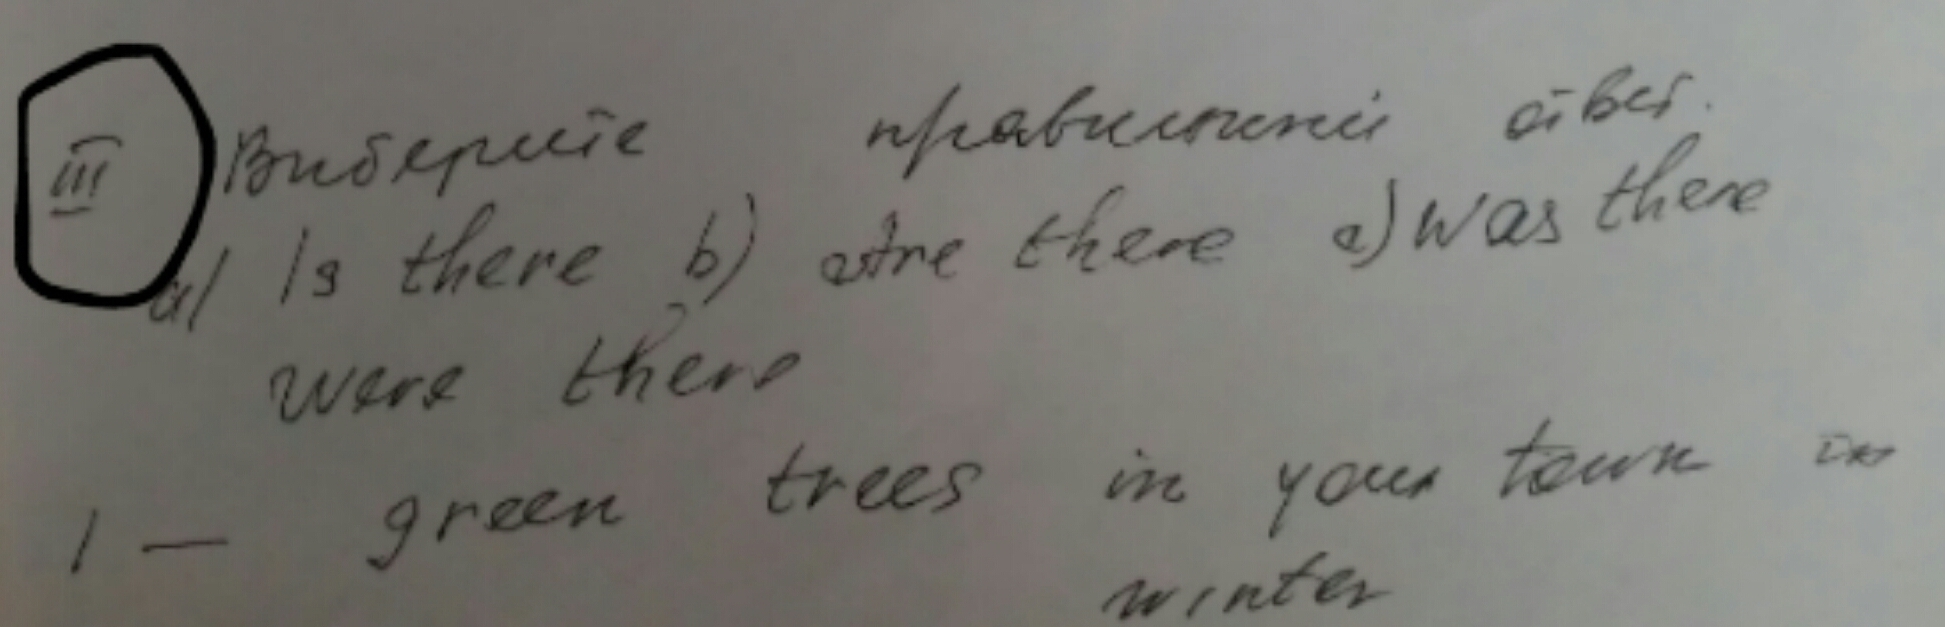 III Виберите правильний ответ.
a) Is there b) Are there c) Was there
were there
1 — green trees in your town in
winter